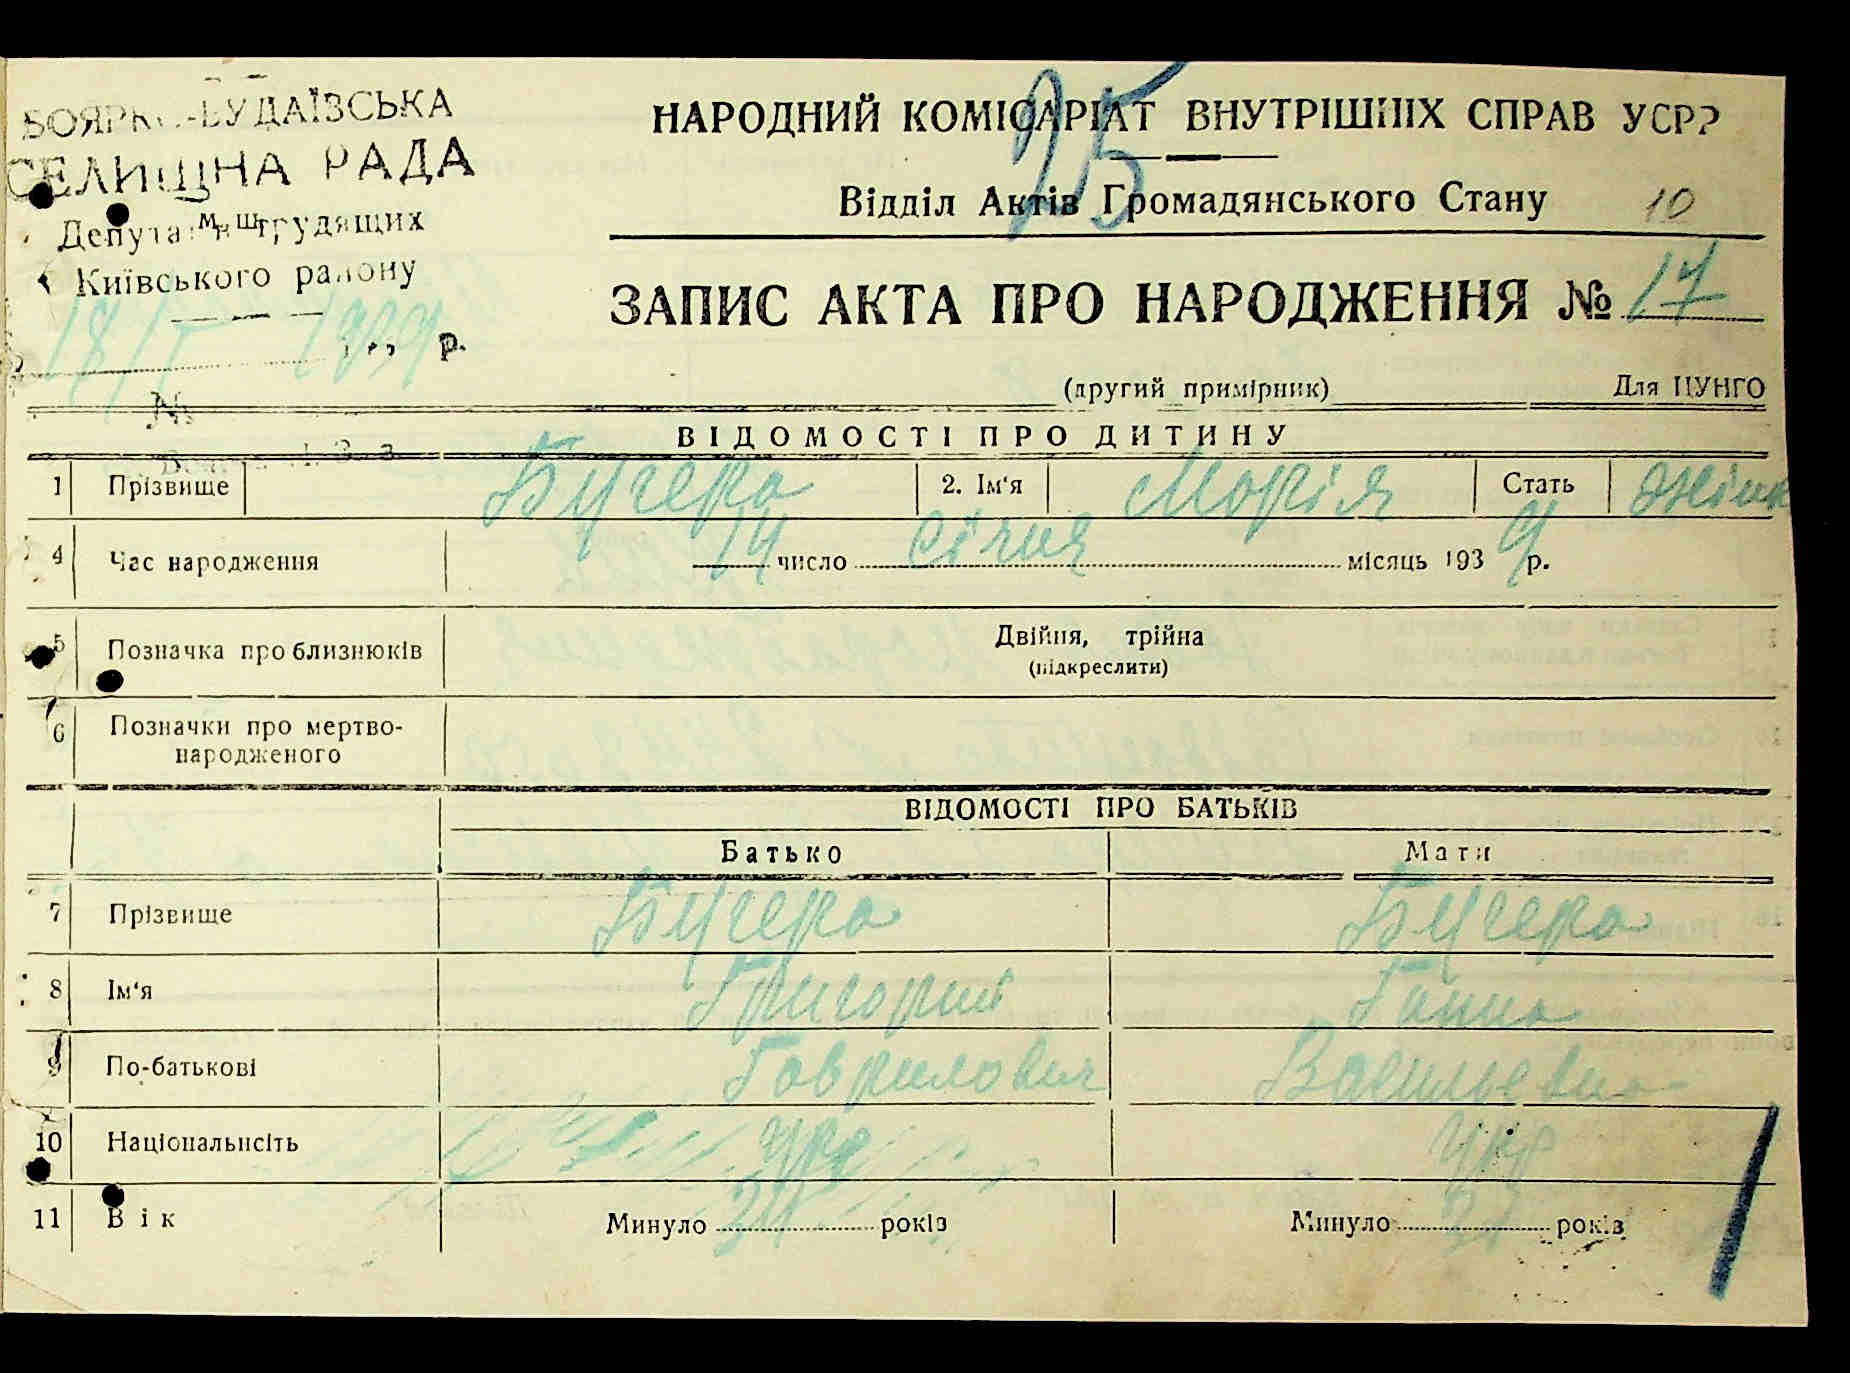 БОЯРКО-БУДАЇВСЬКА
СЕЛИЩНА РАДА
Депутатів трудящих
Київського району
18/I 1939 р.
№
НАРОДНИЙ КОМІСАРІАТ ВНУТРІШНІХ СПРАВ УСРР
25
Відділ Актів Громадянського Стану
10
ЗАПИС АКТА ПРО НАРОДЖЕННЯ № 17
(другий примірник) Для ЦУНГО
ВІДОМОСТІ ПРО ДИТИНУ
1 Прізвище Бугера 2. Ім'я Марія Стать жіноч
4 Час народження 14 число січня місяць 1939 р.
5 Позначка про близнюків Двійня, трійна
(підкреслити)
6 Позначки про мертво-
народженого
ВІДОМОСТІ ПРО БАТЬКІВ
Батько Мати
7 Прізвище Бугера Бугера
8 Ім'я Григорий Ганна
9 По-батькові Гаврилович Васильевна
10 Національність укр укр
11 Вік Минуло років Минуло років